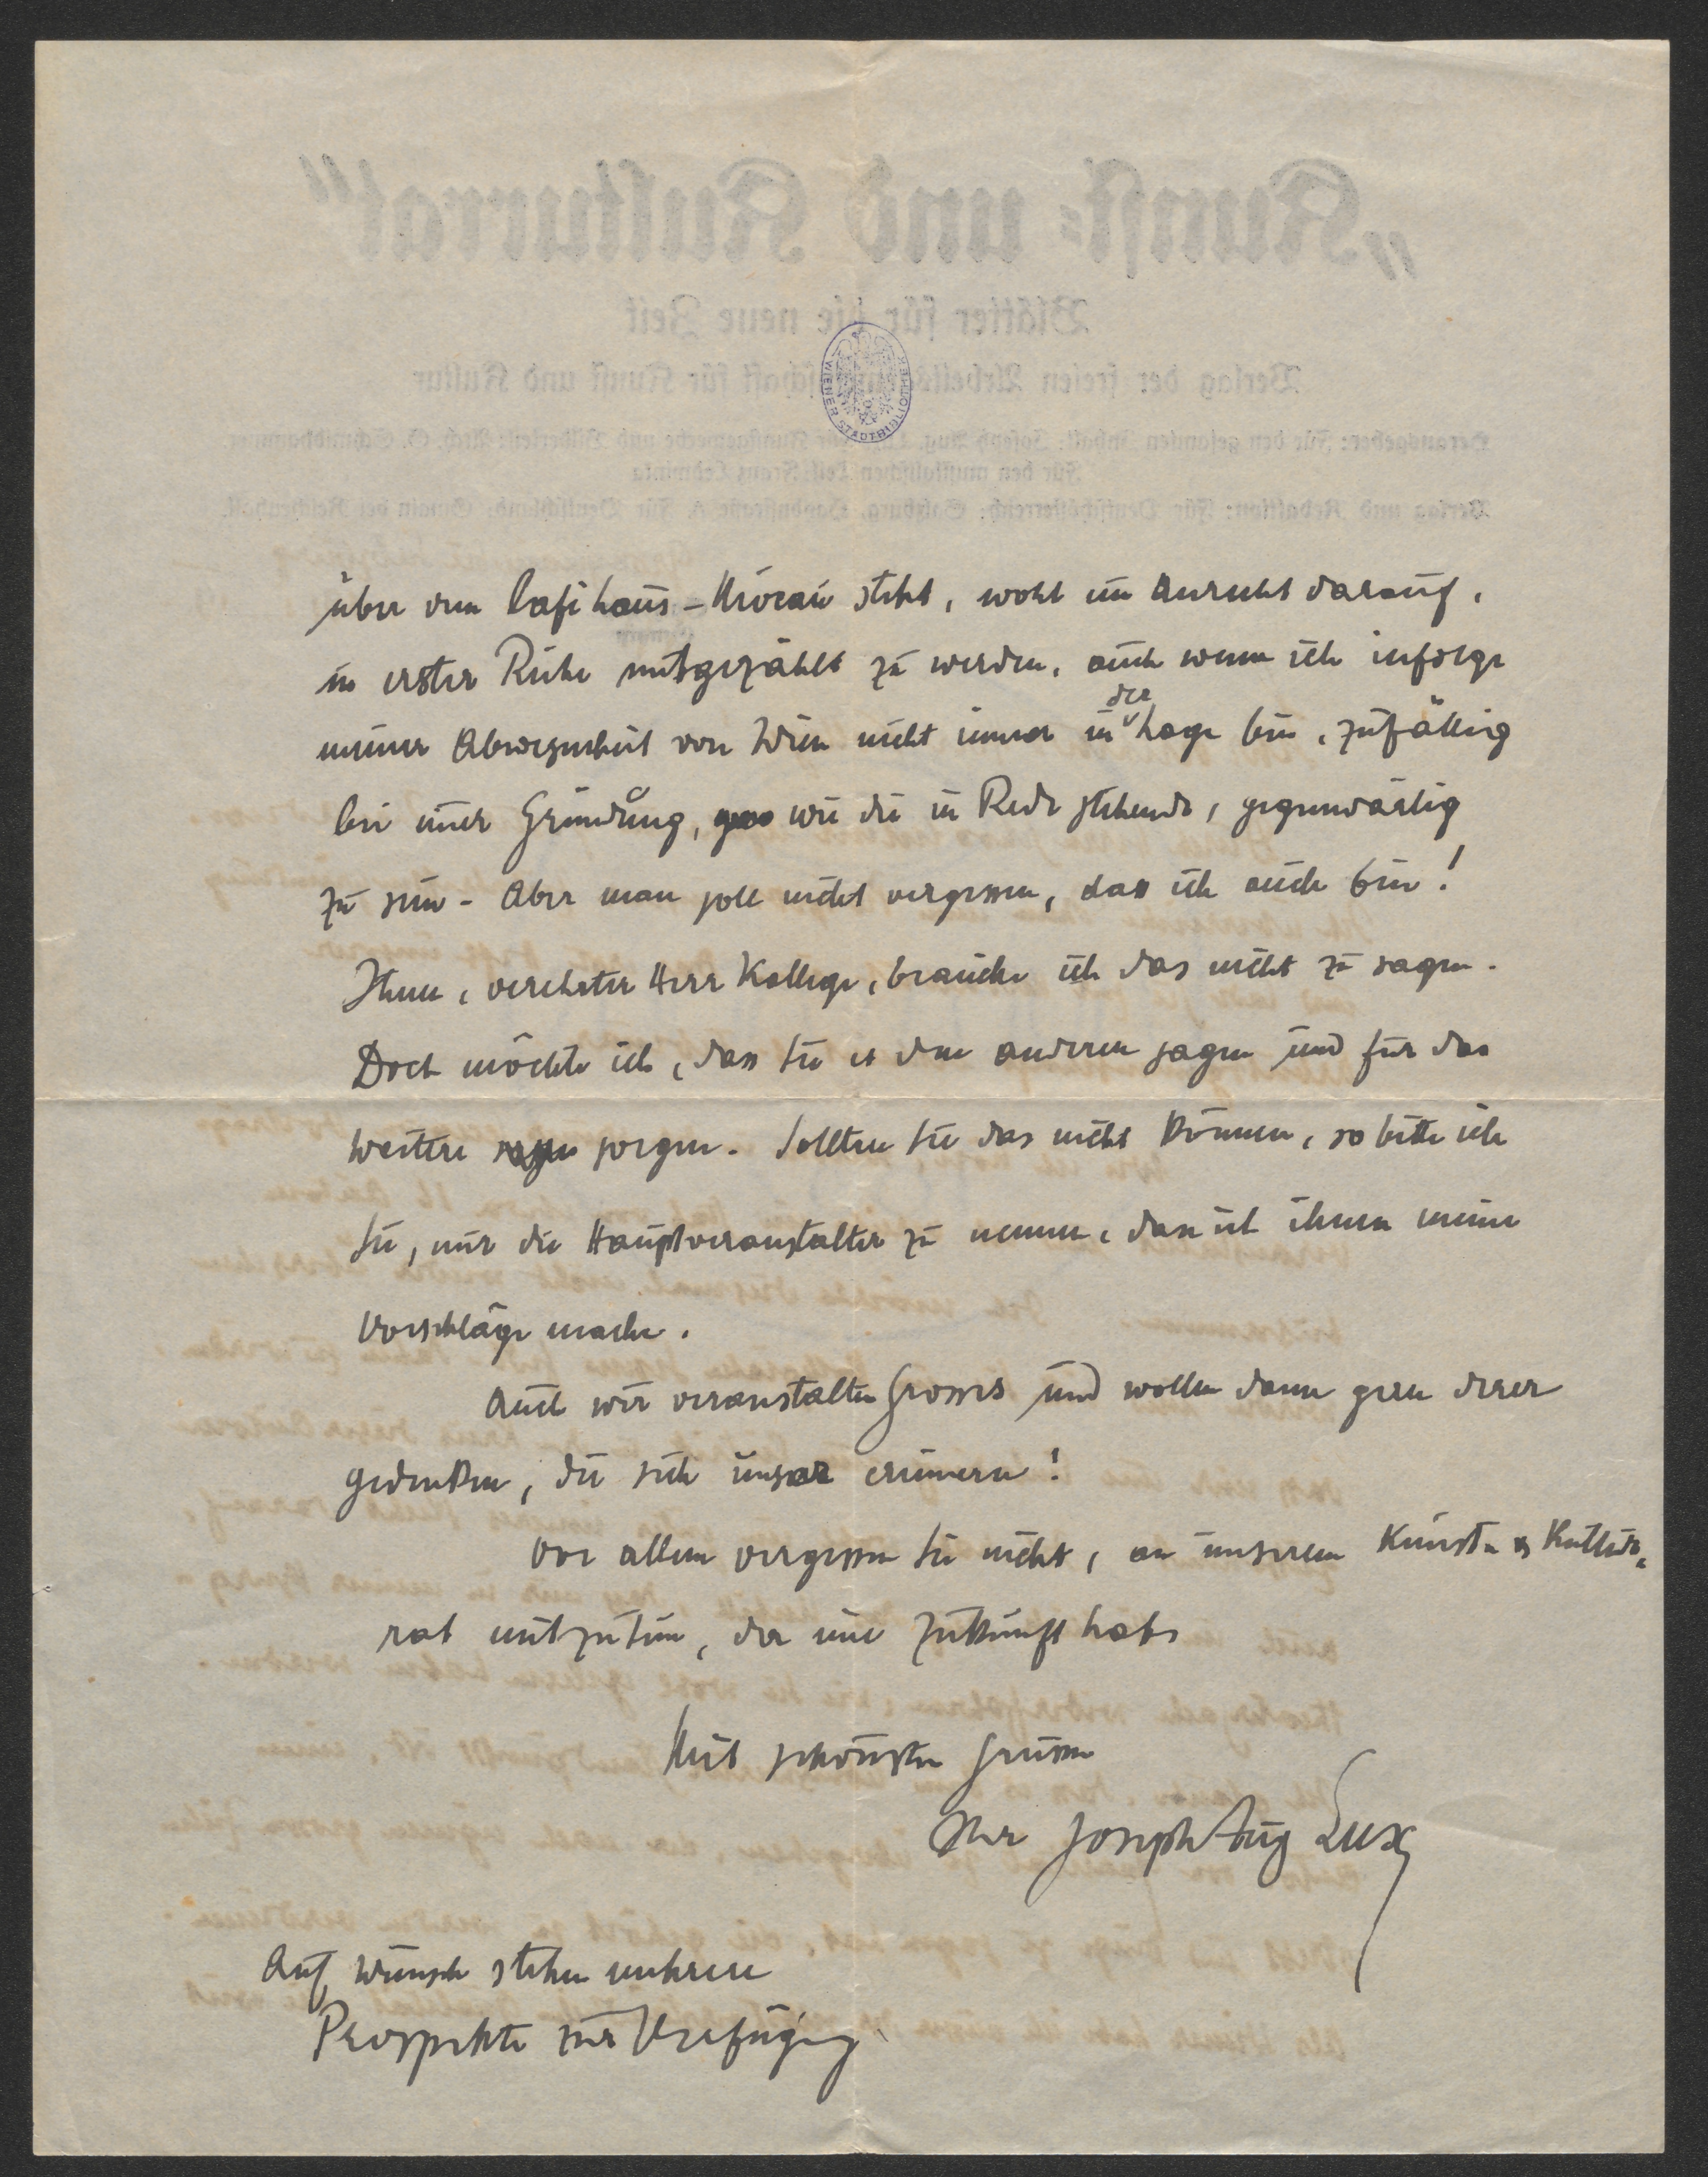 „Kunst- und Kulturrat“
Blätter für die neue Zeit
Verlag der freien Arbeitsgemeinschaft für Kunst und Kultur
WIENER STADTBIBLIOTHEK
über dem Caféhaus-Niveau steht, wohl ein Anrecht darauf,
in erster Reihe mitgezählt zu werden, auch wenn ich infolge
meiner Abwesenheit von Wien nicht immer in der Lage bin, zufällig
bei einer Gründung, wie die in Rede stehende, gegenwärtig
zu sein – Aber man soll nicht vergessen, dass ich auch bin!
Ihnen, verehrter Herr Kollege, brauche ich das nicht zu sagen.
Doch möchte ich, dass Sie es den anderen sagen und für das
Weitere sorgen. Sollten Sie das nicht können, so bitte ich
Sie, mir die Hauptveranstalter zu nennen, dass ich ihnen meine
Vorschläge mache.
Auch wir veranstalten Grosses und wollen dann gern derer
gedenken, die sich unser erinnern!
Vor allem vergessen Sie nicht, an unserem Kunst- & Kultur-
rat mitzutun, der eine Zukunft hat.
Mit schönsten Grüssen
Ihr Joseph Aug Lux
Auf Wunsch stehen mehrere
Prospekte zur Verfügung